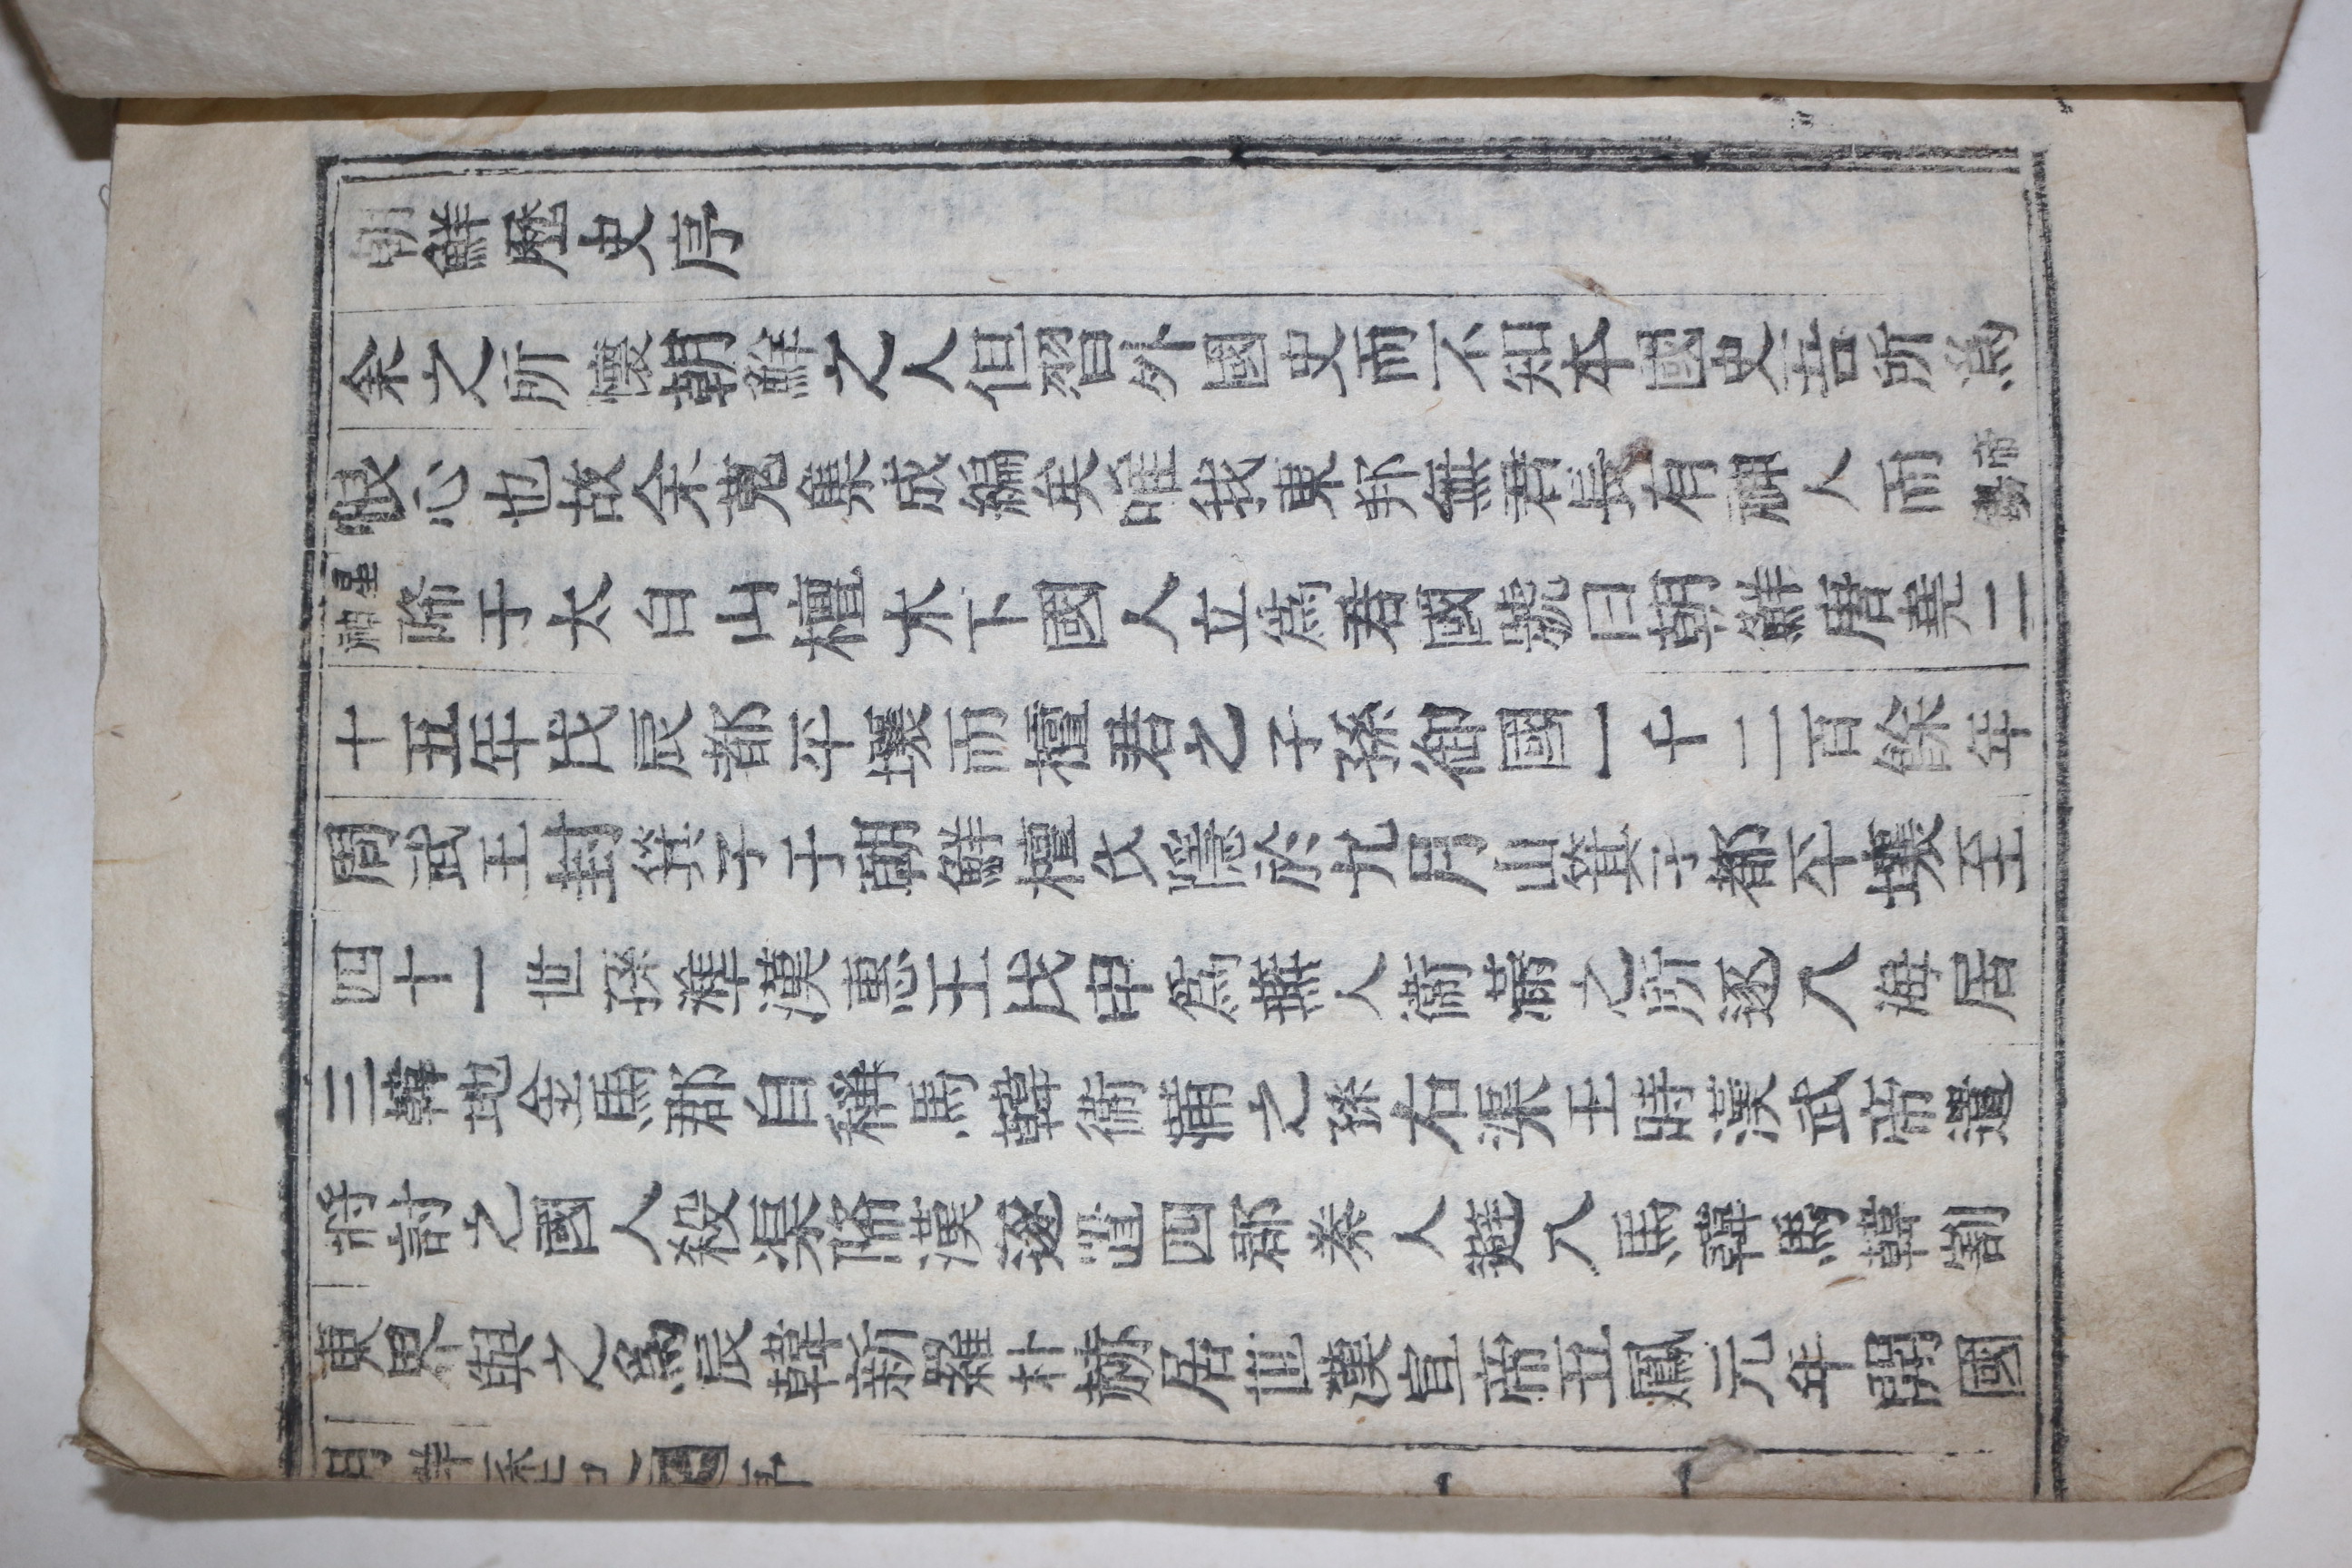 朝鮮歷史序
余之所懷朝鮮之人但習外國史而不知本國史吾所爲
恨心也故余蒐集成編矣唯我東邦無君長有神人而帝
星神降于太白山檀木下國人立爲君國號曰朝鮮唐堯二
十五年戊辰都平壤而檀君之子孫御國一千二百餘年
周武王封箕子于朝鮮檀氏隱於九月山箕子都平壤至
四十一世孫準漢惠王戊申爲燕人衞滿之所逐入海居
三韓地金馬郡自稱馬韓衞滿之孫右渠王時漢武帝遣
將討之國人殺渠降漢遂置四郡秦人避入馬韓馬韓割
東界與之爲辰韓新羅朴赫居世漢宣帝五鳳元年開國